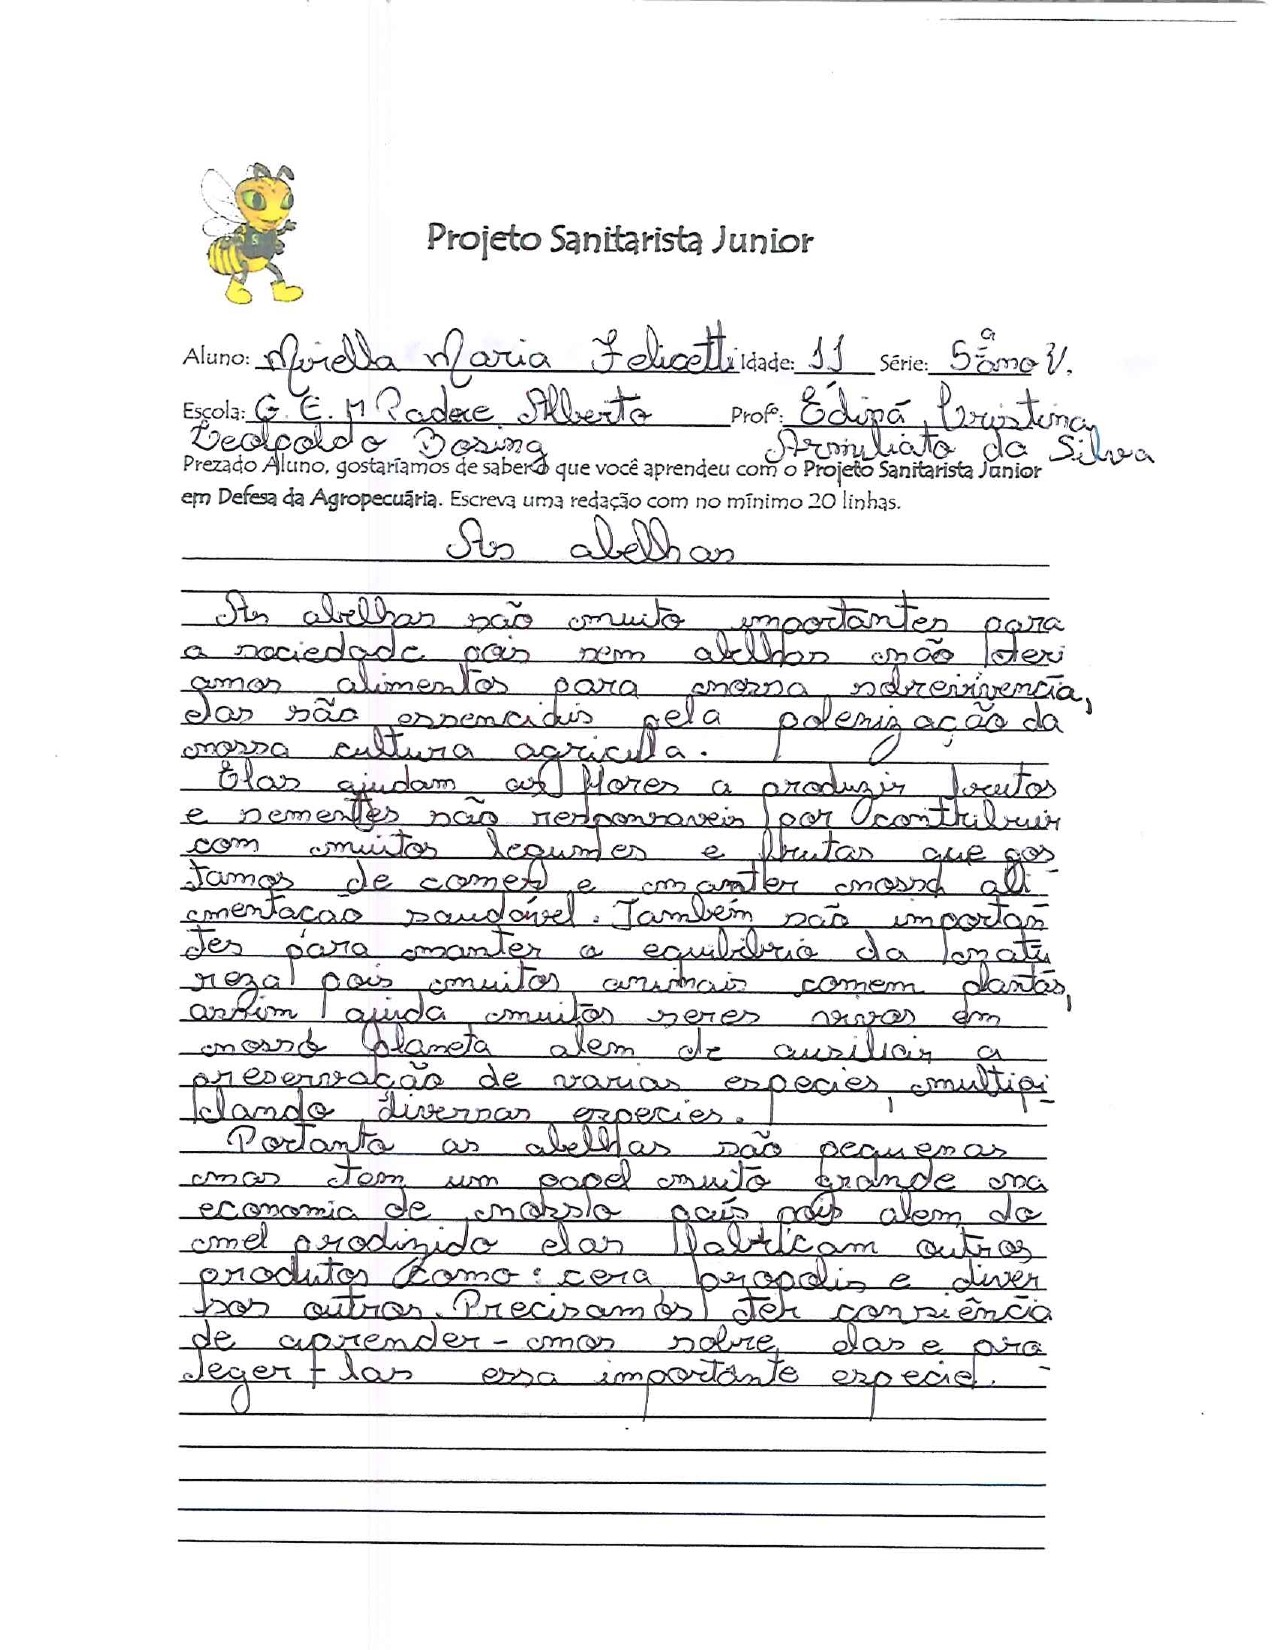 Projeto Sanitarista Junior
Aluno: Mirella Maria Felicetti Idade: 11 Série: 5º ano V.
Escola: G. E. M Padre Alberto Profº: Édina Cristina
Leopoldo Bosing Armiliato da Silva
Prezado Aluno, gostaríamos de saber o que você aprendeu com o Projeto Sanitarista Junior
em Defesa da Agropecuária. Escreva uma redação com no mínimo 20 linhas.
As abelhas
As abelhas são muito importantes para
a sociedade pois sem abelhas não teri
amos alimentos para nossa sobrevivencia,
elas são essenciais pela polenização da
nossa cultura agricula.
Elas ajudam as flores a produzir frutos
e sementes são responsaveis por contribuir
com muitos legumes e frutas que gos
tamos de comer e manter nossa ali-
mentação saudável. Também são importan
tes para manter o equilibrio da natu
reza pois muitos animais comem plantas,
assim ajuda muitos seres vivos em
nosso planeta alem de auxiliar a
preservação de varias especies, multipi-
clando diversas especies.
Portanto as abelhas são pequenas
mas tem um papel muito grande na
economia de nosso país pois alem do
mel prodizido elas fabricam outros
produtos como: cera propolis e diver
sos outros. Precisamos ter consiência
de aprender-mos sobre elas e pro-
teger-las essa importante especie.